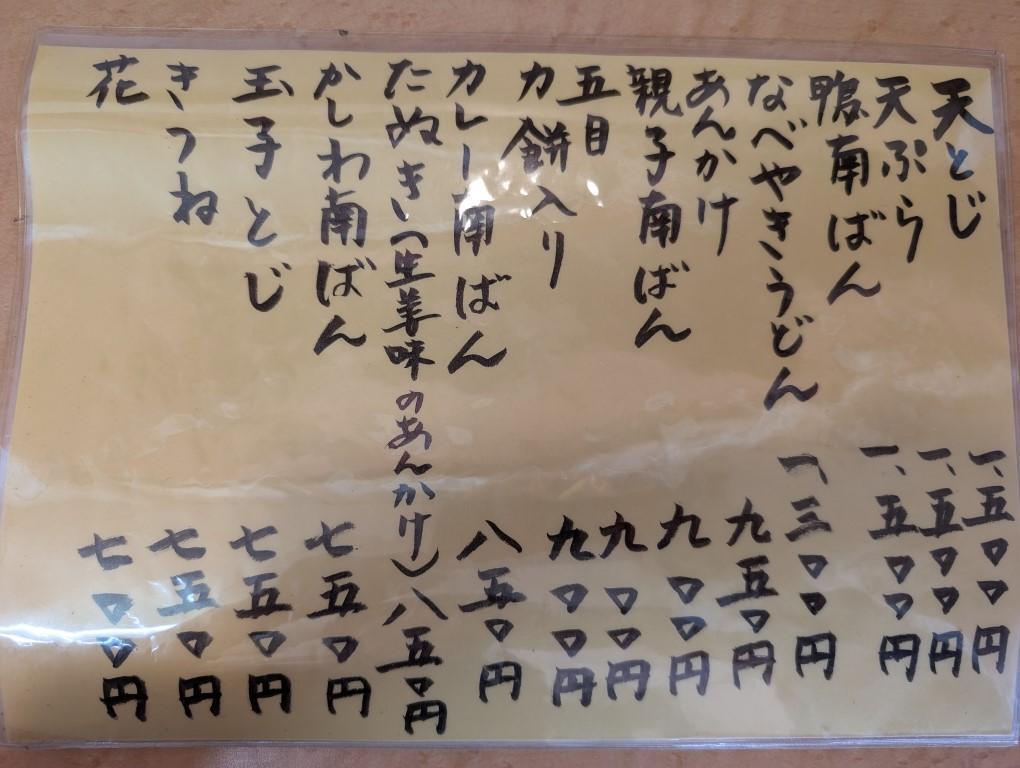 天とじ 一、五〇〇円
天ぷら 一、五〇〇円
鴨南ばん 一、五〇〇円
なべやきうどん 一、三〇〇円
あんかけ 九五〇円
親子南ばん 九〇〇円
五目 九〇〇円
力餅入り 九〇〇円
カレー南ばん 八五〇円
たぬき(生姜味のあんかけ) 八五〇円
かしわ南ばん 七五〇円
玉子とじ 七五〇円
きつね 七五〇円
花 七〇〇円